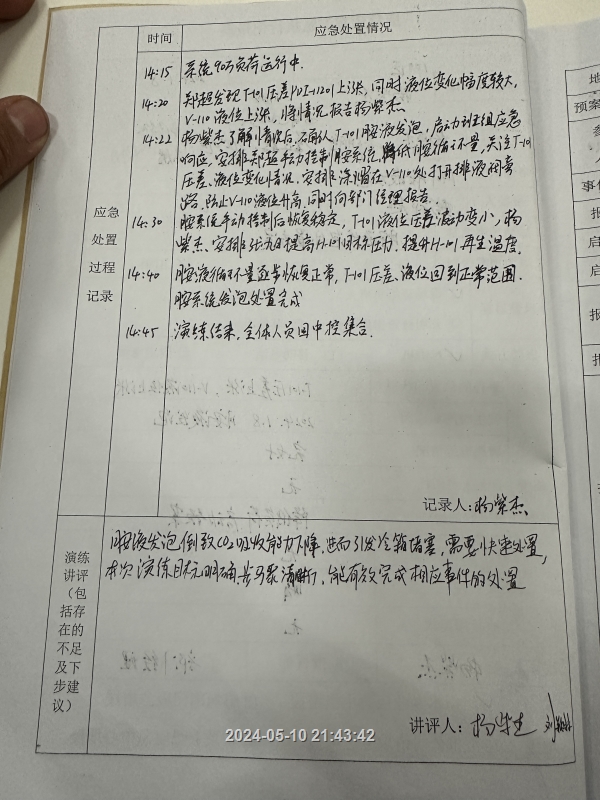 时间
应急处置情况
14:15 系统90万负荷运行中.
14:20 郑超发现T-101压差PDI-11201上涨,同时液位变化幅度较大,
V-110液位上涨,将情况报告杨紫杰
14:22 杨紫杰了解情况后,确认T-101胺液发泡,启动班组应急
响应,安排郑超手动控制胺系统,降低胺循环量,关注T-101
压差、液位变化情况,安排涂 在V-110处打开排液阀
防止V-110液位升高,同时向部门经理报告.
14:30 胺系统手动控制后恢复稳定,T-101液位压差波动变小,杨
紫杰安排 提高H-101目标压力.提升H-101再生温度.
14:40 胺液循环量逐步恢复正常,T-101压差、液位回到正常范围.
胺系统发泡处置完成
14:45 演练结束,全体人员回中控集合.
应急
处置
过程
记录
记录人:杨紫杰
演练
讲评
(包
括存
在的
不足
及下
步建
议)
胺液发泡倒致CO2吸收能力下降,进而引发冷箱堵塞,需要快速处置,
本次演练目标明确,步骤清晰,能有效完成相应事件的处置
讲评人:杨
2024-05-10 21:43:42
地
预案
事件
报
启
启
报
报